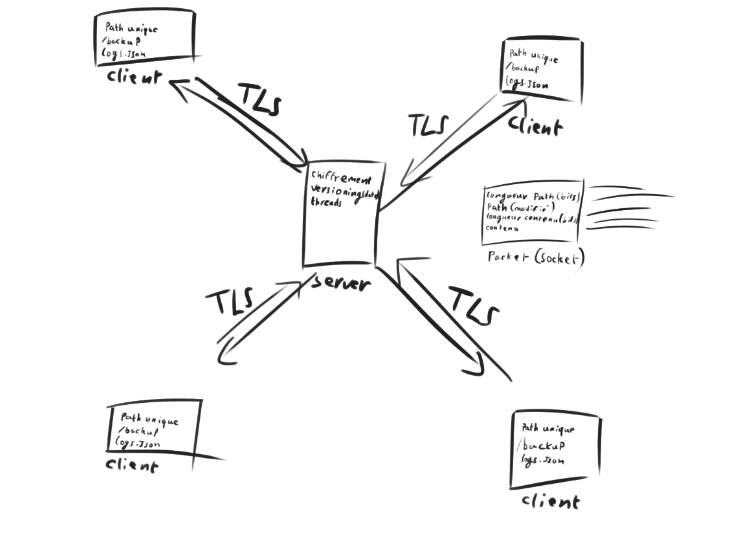 Path unique
/backup
logs.Json
client
TLS
Path unique
/backup
logs.Json
client
TLS
chiffrement
versioning(date)
threads
server
longueur Path(bits)
Path (modifié)
longueur contenu(bits)
contenu
Packet (Socket)
TLS
TLS
Path unique
/backup
logs.Json
client
Path unique
/backup
logs.Json
client